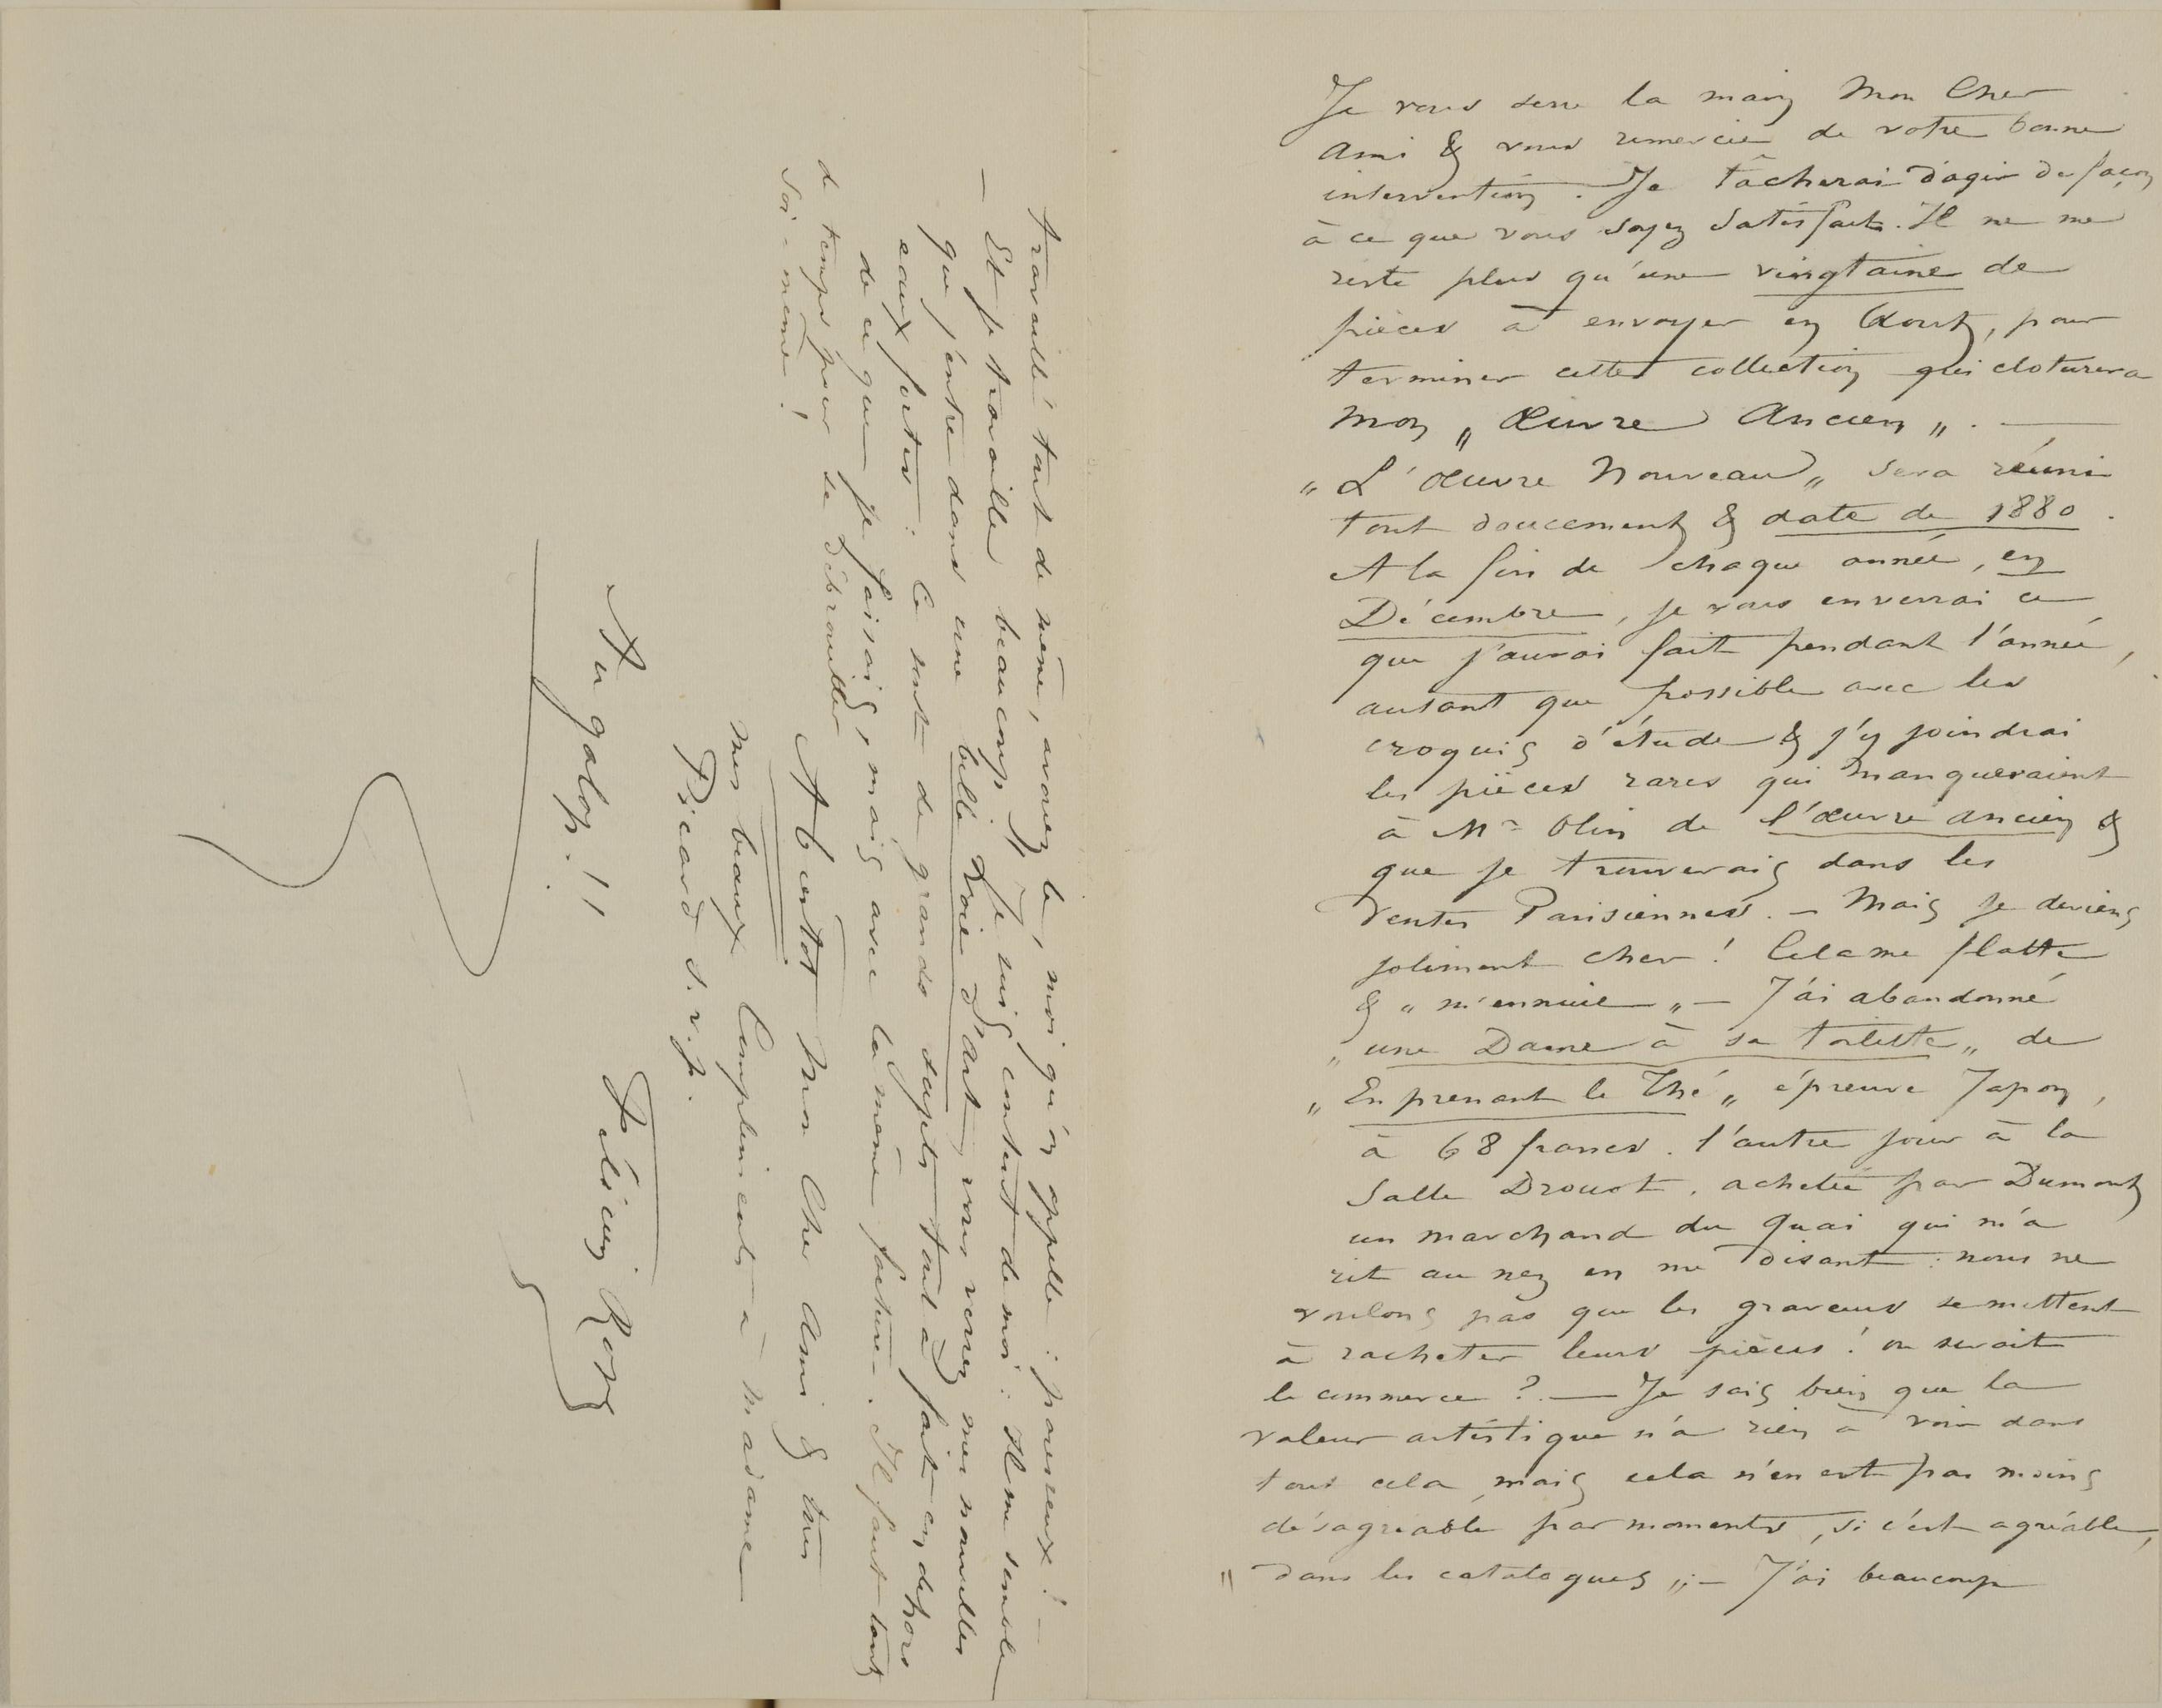 Je vous serre la main Mon Cher
Ami & vous remercie de votre bonne
intervention. Je tâcherai d'agir de façon
à ce que vous soyez Satisfait. Il ne me
reste plus qu'une vingtaine de
pièces à envoyer en Aout, pour
terminer cette collection qui cloturera
mon „ Œuvre Ancien „. —
„ L'Œuvre Nouveau „ sera réuni
tout doucement & date de 1880.
A la fin de chaque année, en
Décembre, je vous enverrai ce
que j'aurai fait pendant l'année,
autant que possible avec les
croquis d'étude & j'y joindrai
les pièces rares qui manqueraient
à Mr Olin de l'œuvre ancien &
que je trouverais dans les
Ventes Parisiennes. — Mais je deviens
joliment cher ! Cela me flatte
& „ m'ennuie „ — J'ai abandonné
„ une Dame à sa toilette „ de
„ En prenant le Thé „ épreuve Japon,
à 68 francs. l'autre jour à la
Salle Drouot, achetée par Dumont
un marchand du Quai qui m'a
rit au nez en me disant : nous ne
voulons pas que les graveurs se mettent
à racheter leurs pièces ! où serait
le commerce ?. — Je sais bien que la
valeur artistique n'a rien à voir dans
tout cela, mais cela n'en est pas moins
désagréable par moments, si c'est agréable,
= dans les catalogues „ ; — J'ai beaucoup
travaillé tout de même, avouez le, moi qu'on appelle : paresseux ! —
— Et je travaille beaucoup !! Je suis content de moi : Il me semble
que j'entre dans une belle voie d'art, vous verrez mes nouvelles
eaux fortes : Ce sont de grands sujets tout à fait en dehors
de ce que je faisais, mais avec la même facture. Il faut tant
de temps pour se débrouiller
soi-même !
A bientôt mon Cher Ami & mes
mes beaux Compliments à madame
Picard s. v. p.
Au galop. !!
Félicien Rops